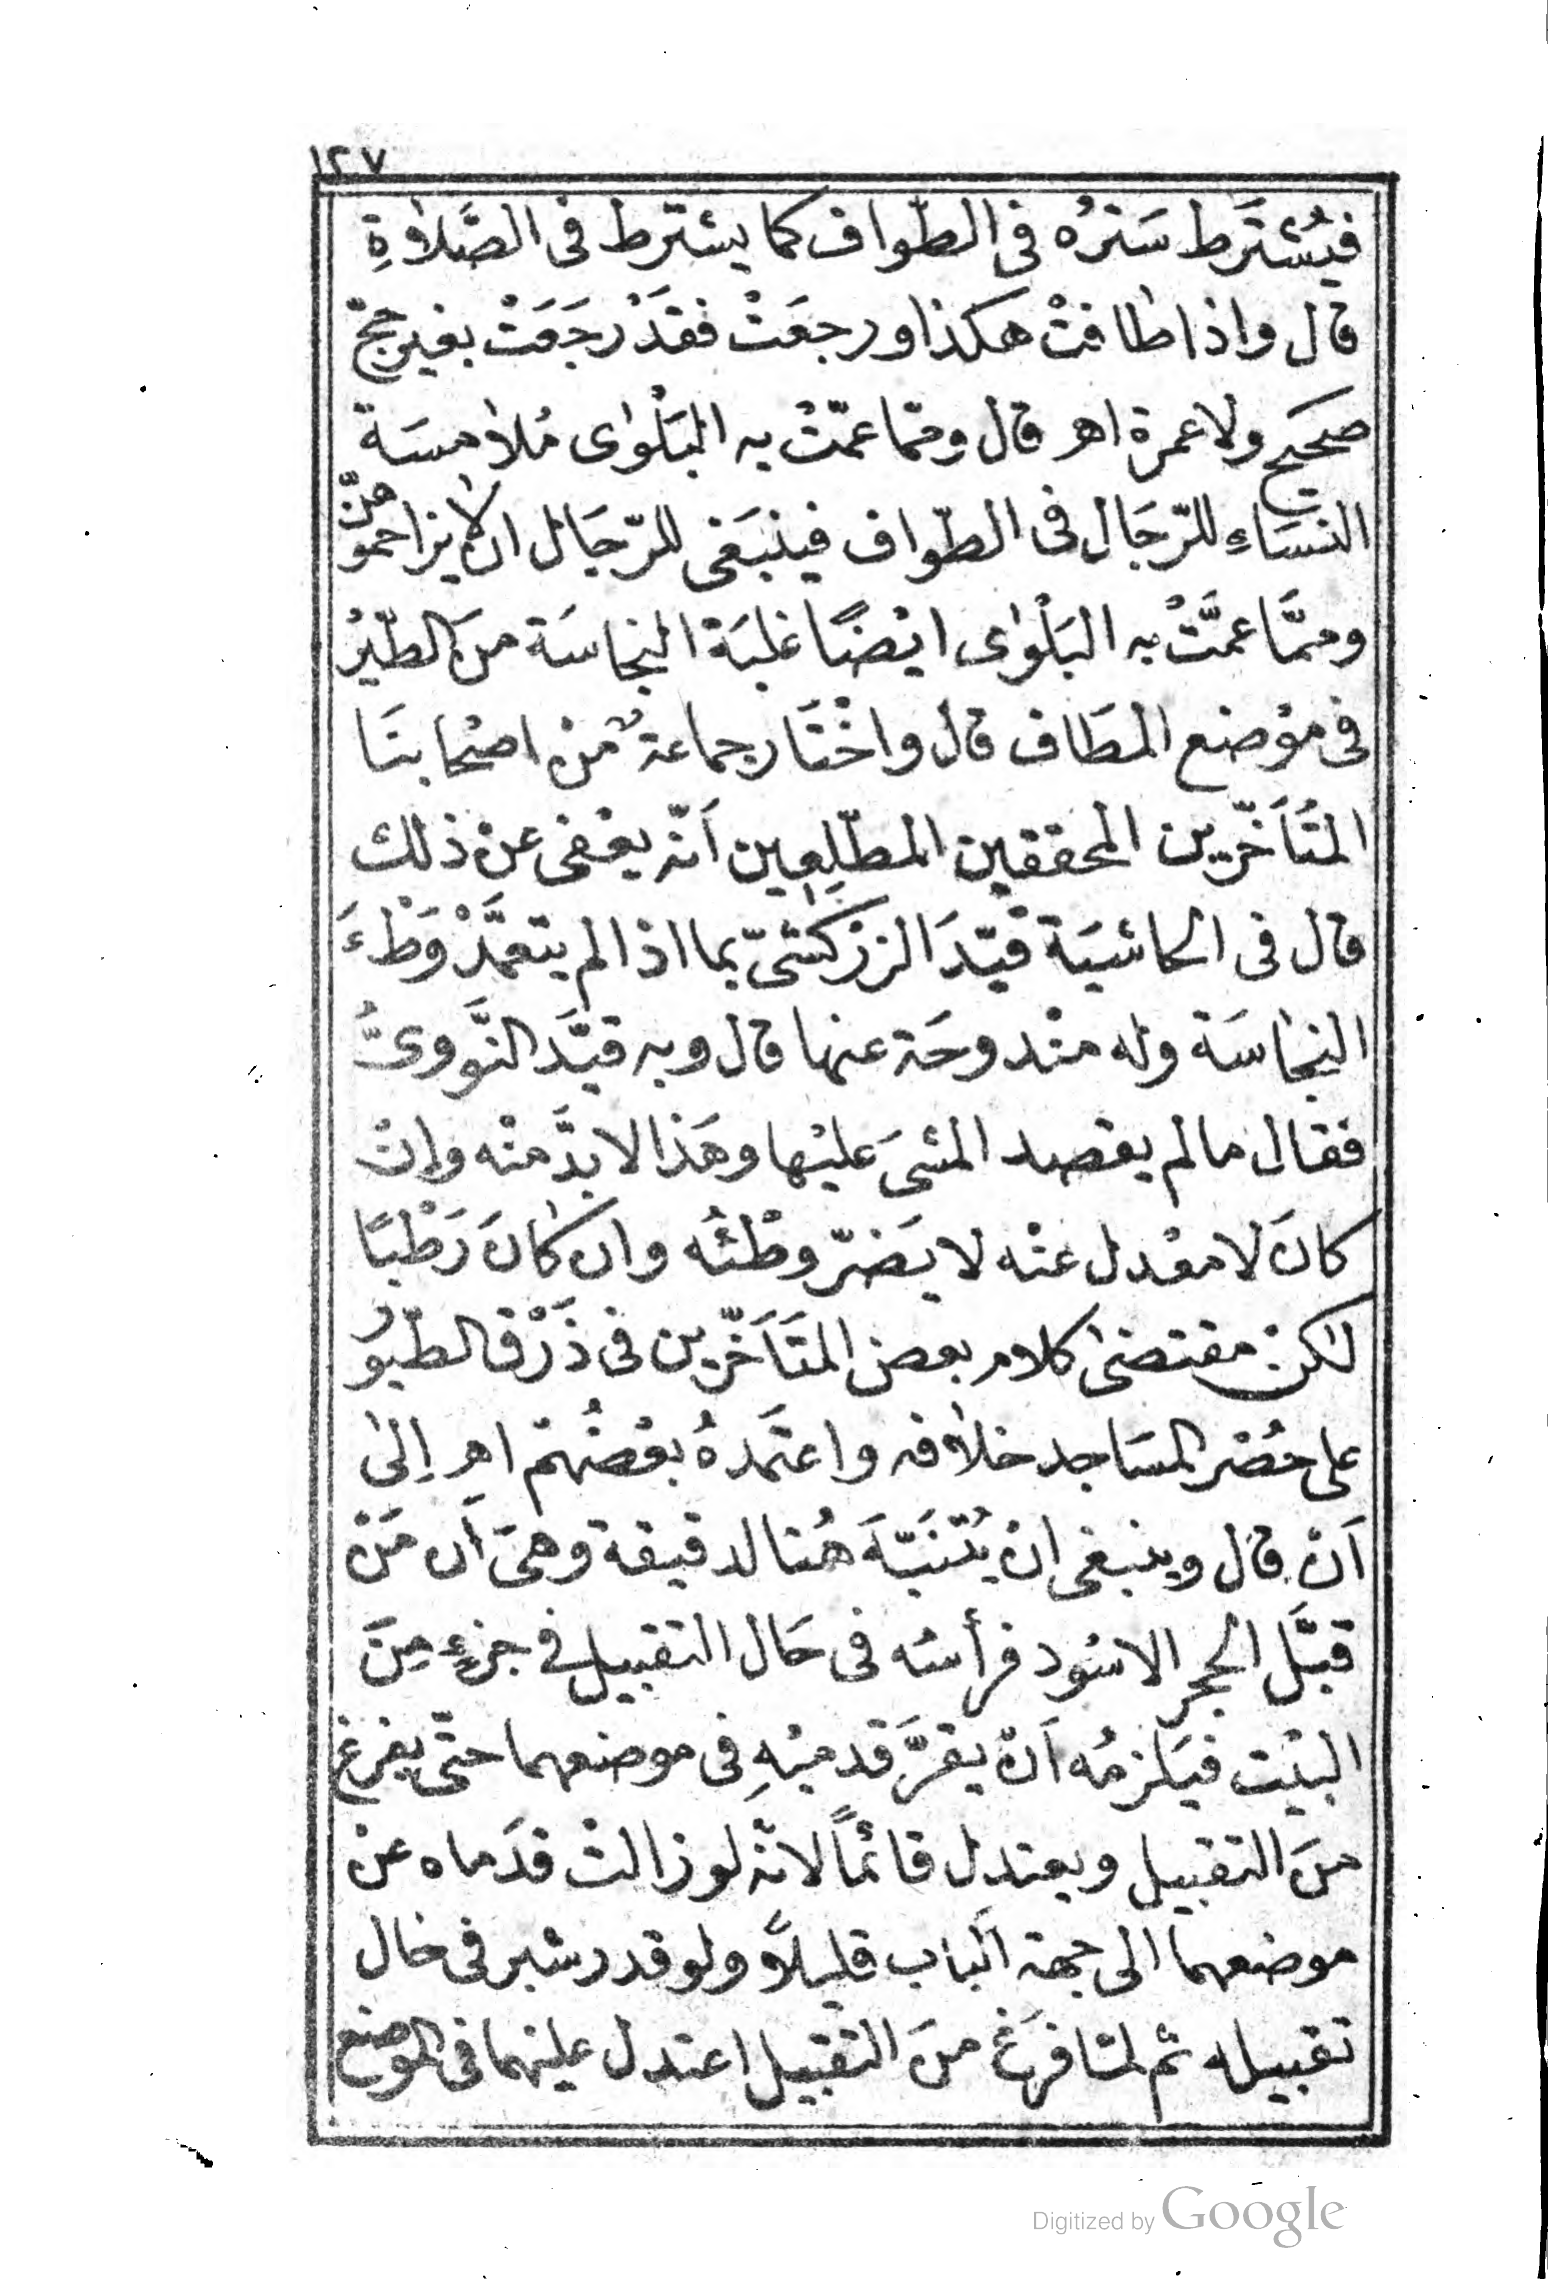 ١٢٧
فيُشْتَرط سَترُه فى الطّواف كما يشترط فى الصَّلٰوةِ
قال واذا طافتْ هكذا ورجعَتْ فقَدْ رجَعَتْ بغير حجّ
صحَيح ولا عمرة اهـ قال وممّا عمّتْ به البَلْوٰى مُلاٰمسَة
النسَاءِ للرّجَال فى الطّواف فينبَغى للرّجَال ان لا يزاحموهنّ
وممَّا عمَّتْ به البَلْوٰى ايْضًا غلبَة النجاسَة منَ الطّيْر
فى موْضع المطَاف قال واخْتَار جماعةٌ منْ اصْحابنَا
المتُأَخّرين المحققين المطّلِعِين أنّه يعْفى عنْ ذلك
قال فى الحاشيَة قيّدَ الزرْكَشىّ بما اذا لم يتعمَّدْ وَطْءَ
النجاسَة وله منْدوحَة عنها قال وبه قيَّد النَّووىُّ
فقال ما لم يقصد المشىَ عليْها وهَذا لا بدَّ منْه وإنْ
كانَ لا معْدل عنْه لا يَضرّ وطْئُه وان كانَ رَطْبًا
لٰكنْ مقتضىٰ كلام بعض المتَأَخّرين فى ذَرْق الطّيُور
على حُصْر المسَاجد خلاٰفه واعتَمدهُ بعْضُهمْ اهـ اِلىٰ
اَنْ قال وينبغى انْ يُتنَبّهَ هُنا لدقيقة وهىَ أن مَنْ
قبَّل الحجر الاسْود فرأسُه فى حَال التقبيل فى جزءٍ مِنَ
البيْت فيَلزمُه اَنْ يقرَّ قدميْهِ فى موضعهما حتّى يفرغ
منَ التقبيل ويعتدل قائمًا لانّه لو زالتْ قدَماه عنْ
موضعهما الى جهة الباب قليلاً ولو قدر شبر فى حَال
تقبيله ثم لمّا فرَغ منَ التقبيل اعتدل عليْهما فى الموضع
Digitized by Google